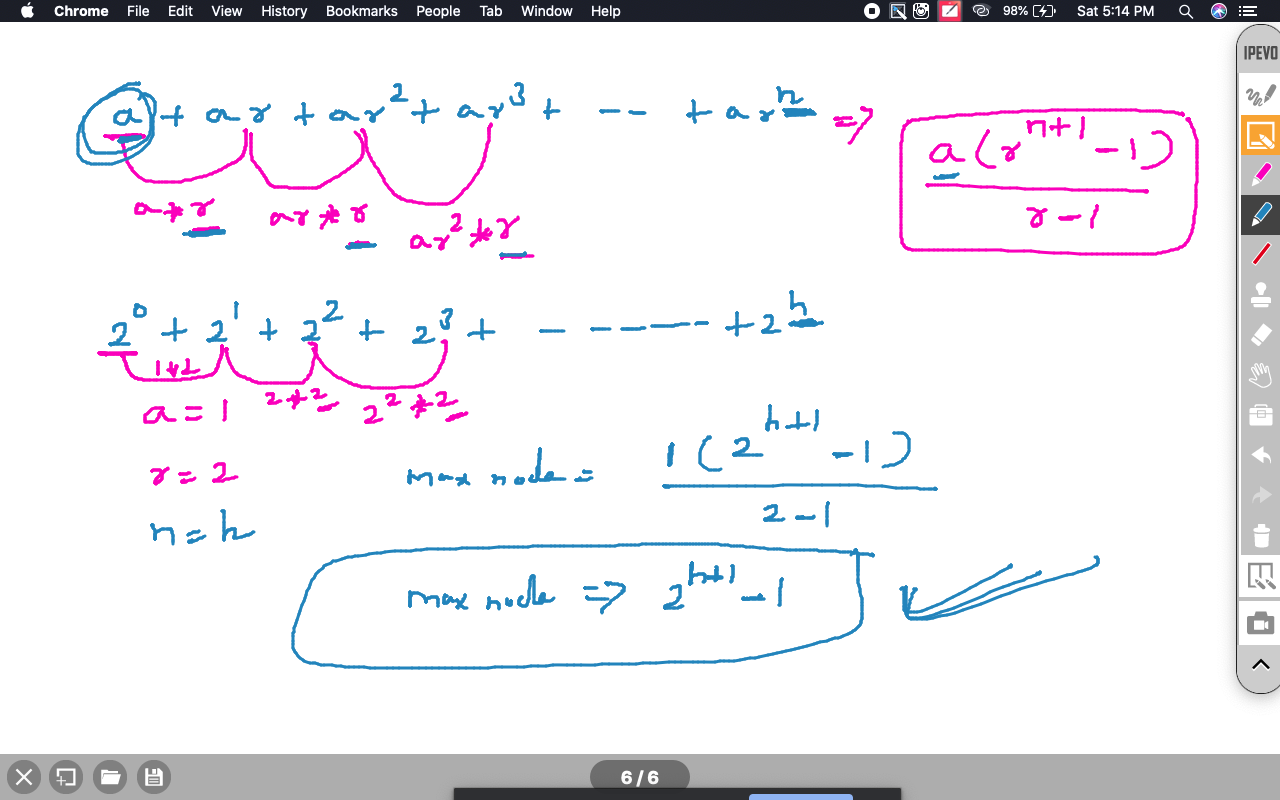 Chrome File Edit View History Bookmarks People Tab Window Help 98% Sat 5:14 PM
IPEVO
a + ar + ar² + ar³ + -- + arⁿ => a(rⁿ⁺¹ - 1) / r - 1
a * r ar * r ar² * r
2⁰ + 2¹ + 2² + 2³ + - - - - - - + 2ʰ
1 * 2 2 * 2 2² * 2
a = 1
r = 2
max node = 1(2ʰ⁺¹ - 1) / 2 - 1
n = h
max node => 2ʰ⁺¹ - 1
6 / 6